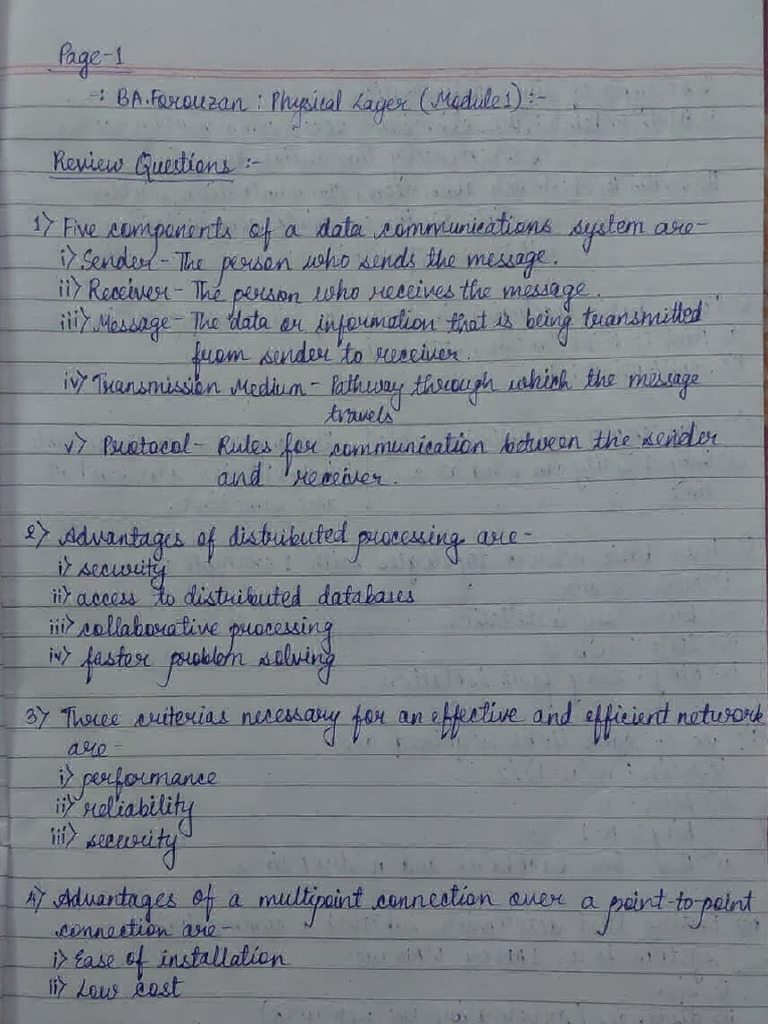 Page-1
-: BA.Forouzan : Physical Layer (Module 1) :-
Review Questions :-
1) Five components of a data communications system are-
i) Sender - The person who sends the message.
ii) Receiver - The person who receives the message.
iii) Message - The data or information that is being transmitted
from sender to receiver.
iv) Transmission Medium - Pathway through which the message
travels
v) Protocol - Rules for communication between the sender
and receiver.
2) Advantages of distributed processing are -
i) security
ii) access to distributed databases
iii) collaborative processing
iv) faster problem solving
3) Three criterias necessary for an effective and efficient network
are -
i) performance
ii) reliability
iii) security
4) Advantages of a multipoint connection over a point-to-point
connection are -
i) Ease of installation
ii) Low cost